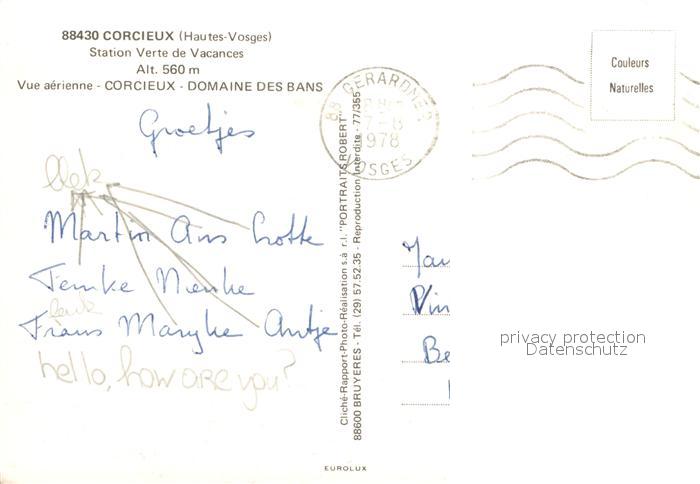 88430 CORCIEUX (Hautes-Vosges)
Station Verte de Vacances
Alt. 560 m
Vue aérienne - CORCIEUX - DOMAINE DES BANS
Groetjes
Martin Ans Lotte
Femke Nienke
Frans Maryke Antje
hello, how are you?
Cliché-Rapport-Photo-Réalisation s.à r.l. "PORTRAITS ROBERT"
88600 BRUYERES - Tél. (29) 57.52.35 - Reproduction Interdite - 77/355
88 GERARDMER
7-8
1978
VOSGES
Couleurs
Naturelles
Jau
Vin
Be
privacy protection
Datenschutz
EUROLUX